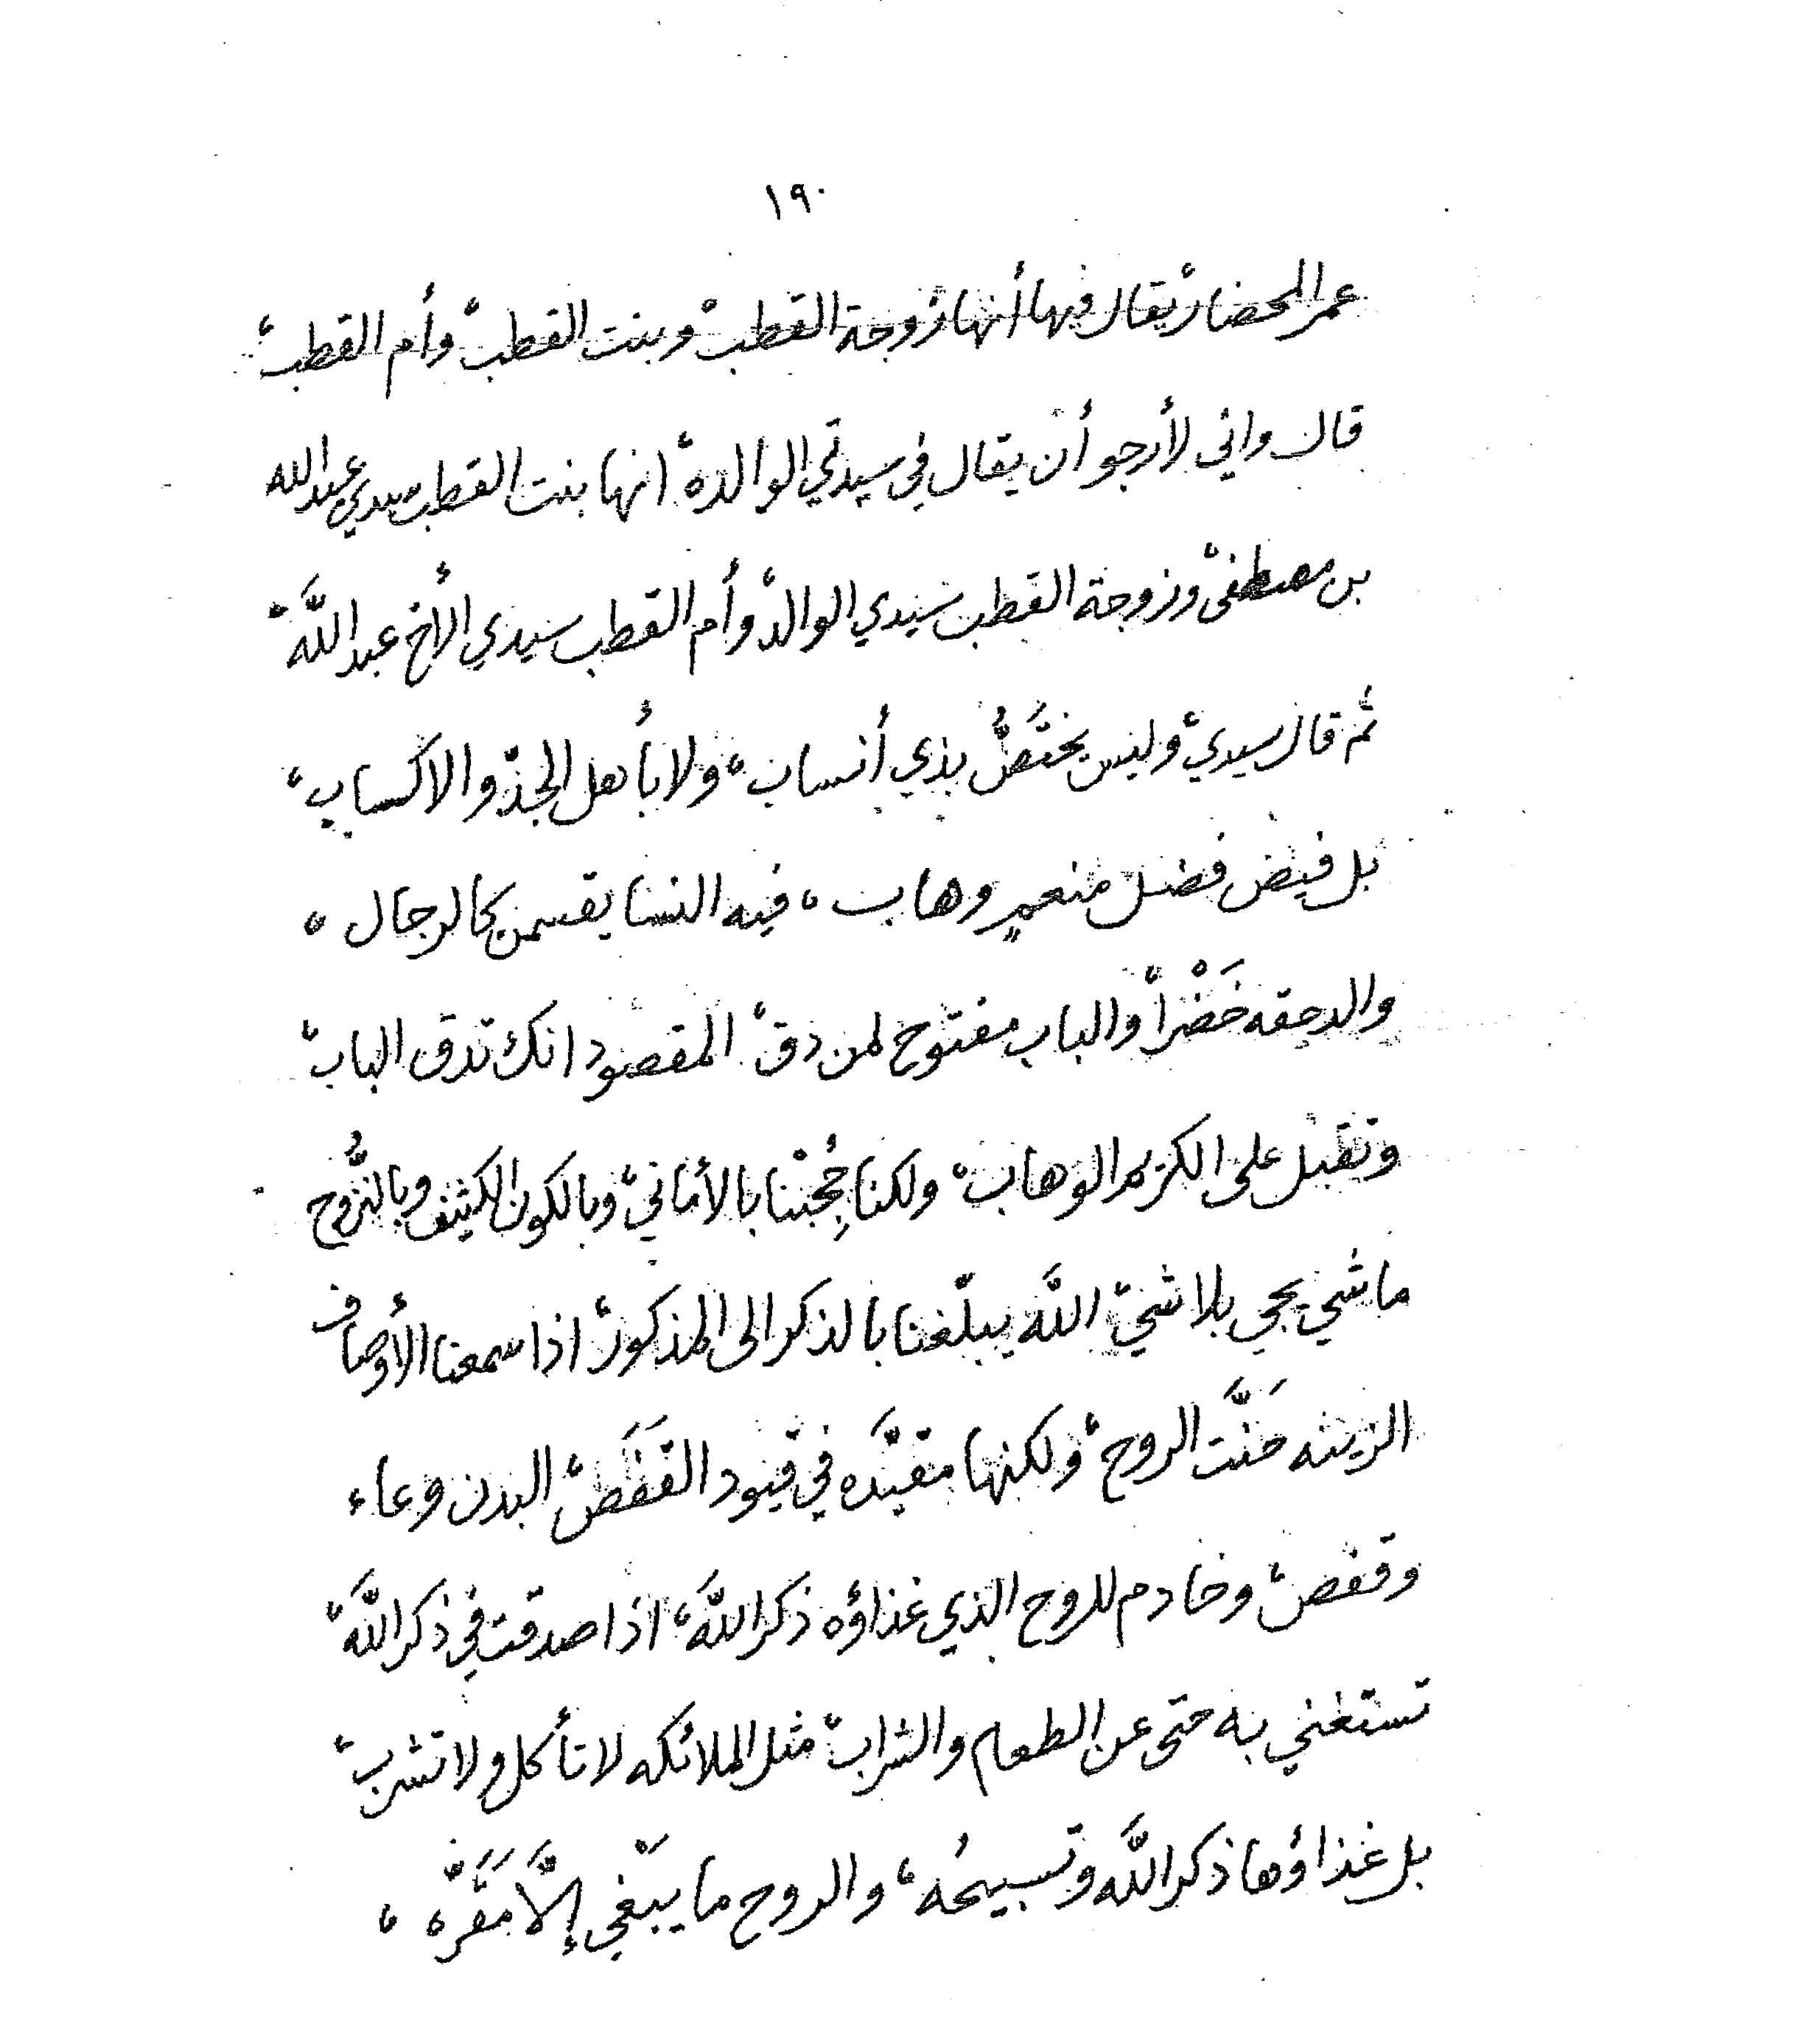 ١٩٠
عمر المحضار، يقال فيها أنها زوجة القطب، وبنت القطب، وأم القطب،
قال واني لأرجو أن يقال في سيدتي الوالده، انها بنت القطب سيدي عبدالله
بن مصطفى، وزوجة القطب سيدي الوالد، وأم القطب سيدي الأخ عبد اللَّه،
ثم قال سيدي، وليس يختَصُّ بذي أنساب، ولا بأهل الجدّ والاكساب،
بل فيض فضل منعمٍ وهاب، فيه النسا يقسمن كالرجال،
والدحقه خَضْرا، والباب مفتوح لمن دق، المقصود انك تدق الباب،
وتقبل على الكريم الوهاب، ولكنا حُجِبْنا بالأماني، وبالكون الكثيف وبالنُّزوح
ماشي يجي بلاشي، اللَّه يبلّغنا بالذكر الى المذكور، اذا سمعنا الأوصاف
الزينه حَنَّت الروح، ولكنها مقيَّده في قيود القَفَص، البدن وعاء
وقفص، وخادم للروح الذي غذاؤه ذكر اللَّه، اذا صدقت في ذكر اللَّه،
تستغني به حتى عن الطعام والشراب، مثل الملائكه لا تأكل ولا تشرب،
بل غذاؤها ذكر اللَّه وتسبيحُه، والروح ما يبّغي إلاَّ مَقَرَّه،